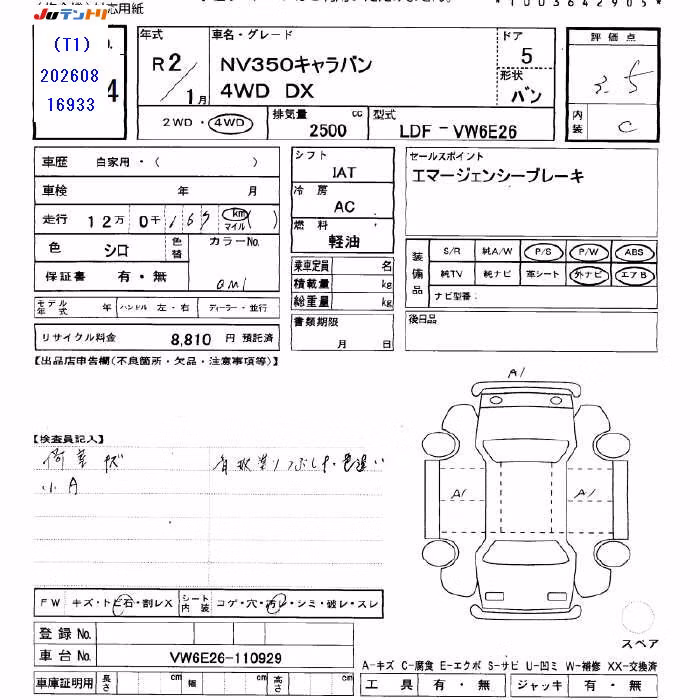 応用紙
*10036429051*
Juテントリ
(T1)
202608
16933
4
年式
R2/1月
車名・グレード
NV350キャラバン
4WD DX
ドア
5
形状
バン
評価点
3.5
内装
C
2WD・4WD
排気量
2500
cc
型式
LDF-VW6E26
車歴 自家用・( )
車検 年 月
走行 12万 0千 167 km マイル ( )
色 シロ 色替 カラーNo.
QM1
保証書 有・無
モデル年式 年 ハンドル 左・右 ディーラー・並行
リサイクル料金 8,810 円 預託済
シフト
IAT
冷房
AC
燃料
軽油
乗車定員 名
積載量 kg
総重量 kg
書類期限
月 日
セールスポイント
エマージェンシーブレーキ
装備品
S/R 純A/W P/S P/W ABS
純TV 純ナビ 革シート 外ナビ エアB
ナビ型番:
後日品
【出品店申告欄(不良箇所・欠品・注意事項等)】
A1
【検査員記入】
荷室キズ
小A
A1
A1
FW キズ・トビ石・割レX シート内装 コゲ・穴・汚レ・シミ・破レ・スレ
登録No.
車台No. VW6E26-110929
車庫証明用 長さ cm 幅 cm 高さ cm
スペア
A-キズ C-腐食 E-エクボ S-サビ U-凹ミ W-補修 XX-交換済
工具 有・無 ジャッキ 有・無